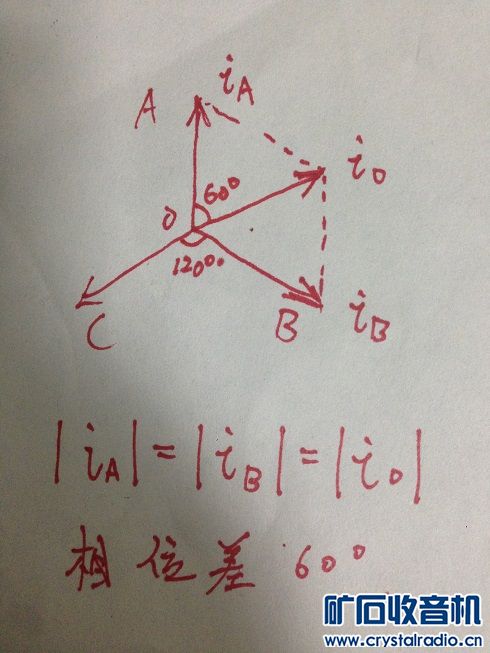 A iA
60° i0
O
120°
C B iB
|iA|=|iB|=|i0|
相位差 60°
矿石收音机
www.crystalradio.cn